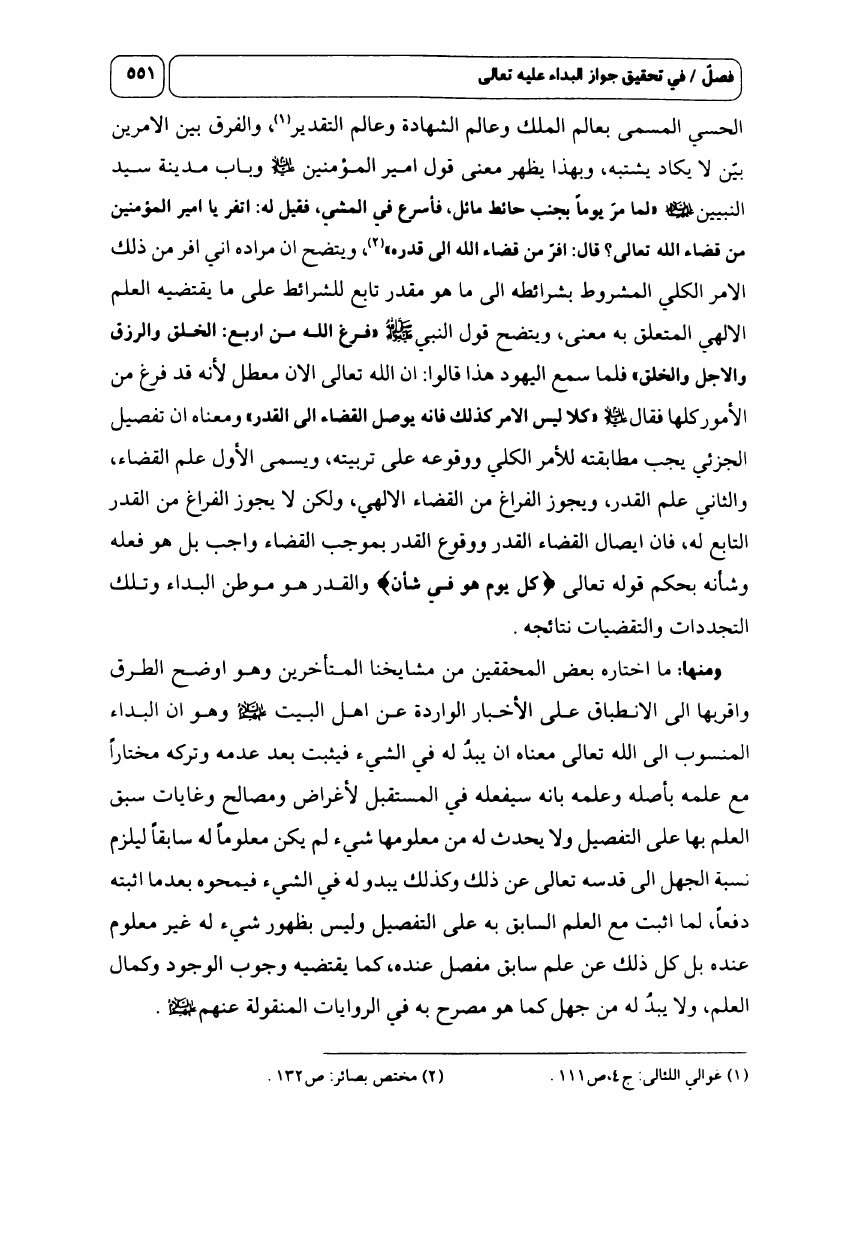 فصلٌ / في تحقيق جواز البداء عليه تعالى ٥٥١
الحسي المسمى بعالم الملك وعالم الشهادة وعالم التقدير(١)، والفرق بين الامرين
بيّن لا يكاد يشتبه، وبهذا يظهر معنى قول امير المؤمنين عليه السلام وباب مدينة سيد
النبيين عليه السلام «لما مرّ يوماً بجنب حائط مائل، فأسرع في المشي، فقيل له: اتفر يا امير المؤمنين
من قضاء الله تعالى؟ قال: افرّ من قضاء الله الى قدره»(٢)، ويتضح ان مراده اني افر من ذلك
الامر الكلي المشروط بشرائطه الى ما هو مقدر تابع للشرائط على ما يقتضيه العلم
الالهي المتعلق به معنى، ويتضح قول النبي ﷺ «فرغ الله من اربع: الخلق والرزق
والاجل والخلق» فلما سمع اليهود هذا قالوا: ان الله تعالى الان معطل لأنه قد فرغ من
الأمور كلها فقال عليه السلام «كلا ليس الامر كذلك فانه يوصل القضاء الى القدر» ومعناه ان تفصيل
الجزئي يجب مطابقته للأمر الكلي ووقوعه على تربيته، ويسمى الأول علم القضاء،
والثاني علم القدر، ويجوز الفراغ من القضاء الالهي، ولكن لا يجوز الفراغ من القدر
التابع له، فان ايصال القضاء القدر ووقوع القدر بموجب القضاء واجب بل هو فعله
وشأنه بحكم قوله تعالى ﴿كل يوم هو في شأن﴾ والقدر هو موطن البداء وتلك
التجددات والتقضيات نتائجه .
ومنها: ما اختاره بعض المحققين من مشايخنا المتأخرين وهو اوضح الطرق
واقربها الى الانطباق على الأخبار الواردة عن اهل البيت عليهم السلام وهو ان البداء
المنسوب الى الله تعالى معناه ان يبدُ له في الشيء فيثبت بعد عدمه وتركه مختاراً
مع علمه بأصله وعلمه بانه سيفعله في المستقبل لأغراض ومصالح وغايات سبق
العلم بها على التفصيل ولا يحدث له من معلومها شيء لم يكن معلوماً له سابقاً ليلزم
نسبة الجهل الى قدسه تعالى عن ذلك وكذلك يبدو له في الشيء فيمحوه بعدما اثبته
دفعاً، لما اثبت مع العلم السابق به على التفصيل وليس بظهور شيء له غير معلوم
عنده بل كل ذلك عن علم سابق مفصل عنده، كما يقتضيه وجوب الوجود وكمال
العلم، ولا يبدُ له من جهل كما هو مصرح به في الروايات المنقولة عنهم عليهم السلام .
(١) غوالي اللئالى: ج٤، ص١١١ . (٢) مختص بصائر: ص١٣٢ .